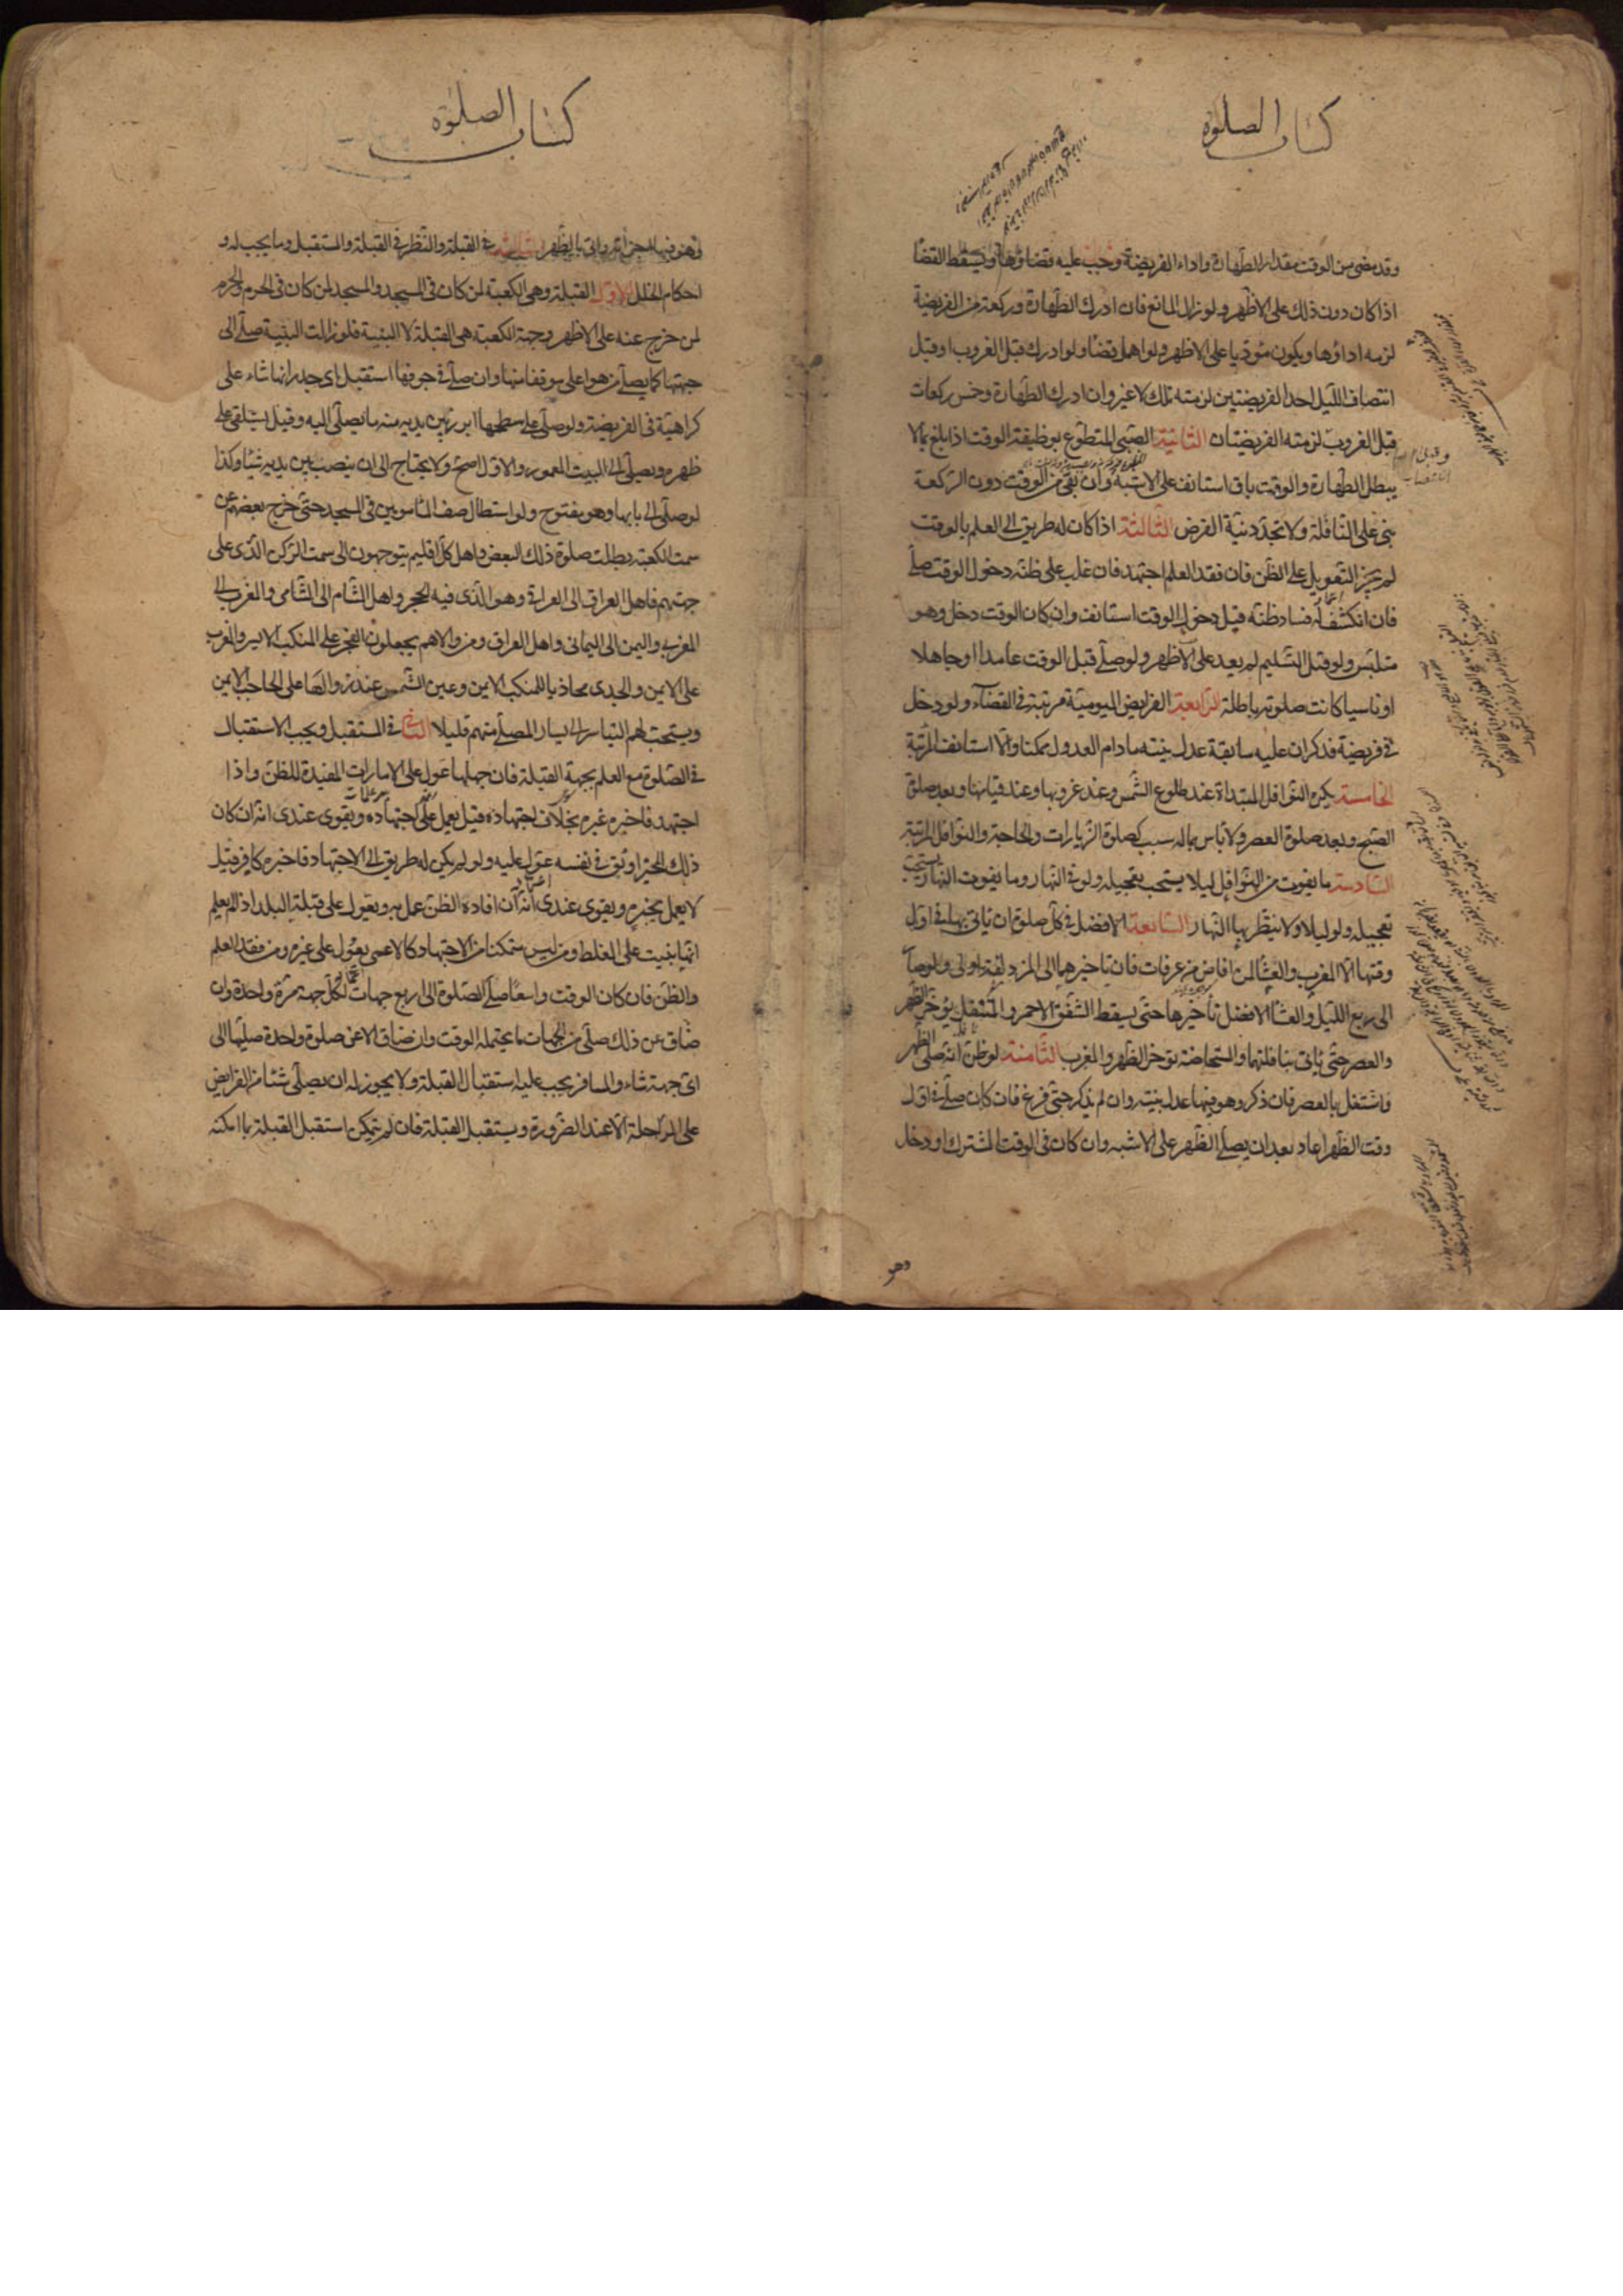 كتاب الصلوة
وقد مضى من الوقت مقدار الطهارة واداء الفريضة وجب عليه قضاؤها ويسقط القضا
اذا كان دون ذلك على الاظهر ولو زال المانع فان ادرك الطهارة وركعة من الفريضة
لزمه اداؤها ويكون مؤديا على الاظهر ولو اهمل قضا ولو ادرك قبل الغروب او قبل
انتصاف الليل احد الفريضتين لزمته تلك لا غير وان ادرك الطهارة وخمس ركعات
قبل الغروب لزمته الفريضتان الثانية الصبي المتطوع بوظيفة الوقت اذا بلغ بما لا
يبطل الطهارة والوقت باق استانف على الاشبه وان بقى من الوقت دون الركعة
بنى على النافلة ولا تجدد نية الفرض الثالثة اذا كان له طريق الى العلم بالوقت
لم يجز التعويل على الظن فان فقد العلم اجتهد فان غلب على ظنه دخول الوقت صلى
فان انكشف له فساد ظنه قبل دخول الوقت استانف وان كان الوقت دخل وهو
متلبس ولو قبل التسليم لم يعد على الاظهر ولو صلى قبل الوقت عامدا او جاهلا
او ناسيا كانت صلوته باطلة الرابعة الفرايض اليومية مرتبة فى القضاء ولو دخل
فى فريضة فذكر ان عليه سابقة عدل بنيته ما دام العدول ممكنا والا استانف المرتبة
الخامسة يكره النوافل المبتداة عند طلوع الشمس وعند غروبها وعند قيامها وبعد صلوة
الصبح وبعد صلوة العصر ولا باس بماله سبب كصلوة الزيارات والحاجة والنوافل المرتبة
السادسة ما يفوت من النوافل ليلا يستحب تعجيله ولو فى النهار وما يفوت النهار يستحب
تعجيله ولو ليلا ولا ينتظر بها النهار السابعة الافضل فى كل صلوة ان ياتى بها فى اول
وقتها الا المغرب والعشا لمن افاض من عرفات فان تاخيرهما الى المزدلفة اولى ولو صار
الى ربع الليل والعشا الافضل تاخيرها حتى يسقط الشفق الاحمر والمتنفل يؤخر الظهر
والعصر حتى ياتى بنافلتهما والمستحاضة تؤخر الظهر والمغرب الثامنة لو ظن انه صلى الظهر
واشتغل بالعصر فان ذكر وهو فيها عدل بنيته وان لم يذكر حتى فرغ فان كان صلى فى اول
وقت الظهر اعاد بعد ان يصلى الظهر على الاشبه وان كان فى الوقت المشترك او دخل
وهو
كتاب الصلوة
وهو فيها اجزأته واتى بالظهر الثالثة فى القبلة والنظر فى القبلة والمستقبل وما يجب له و
احكام الخلل الاول القبلة وهى الكعبة لمن كان فى المسجد والمسجد لمن كان فى الحرم والحرم
لمن خرج عنه على الاظهر وجهة الكعبة هى القبلة لا البنية فلو زالت البنية صلى الى
جهتها كما يصلى من هو اعلى موقفا منها وان صلى فى جوفها استقبل اى جدرانها شاء على
كراهية فى الفريضة ولو صلى على سطحها ابرز بين يديه منه ما يصلى اليه وقيل يستلقى على
ظهره ويصلى الى البيت المعمور والاول اصح ولا يحتاج الى ان ينصب بين يديه شيئا وكذا
لو صلى الى بابها وهو مفتوح ولو استطال صف المأمومين فى المسجد حتى خرج بعضهم عن
سمت الكعبة بطلت صلوة ذلك البعض واهل كل اقليم يتوجهون الى سمت الركن الذى على
جهتهم فاهل العراق الى العراقى وهو الذى فيه الحجر واهل الشام الى الشامى والمغرب الى
المغربى واليمن الى اليمانى واهل العراق ومن والاهم يجعلون الفجر على المنكب الايسر والمغرب
على الايمن والجدى محاذيا للمنكب الايمن وعين الشمس عند زوالها على الحاجب الايمن
ويستحب لهم التياسر الى يسار المصلى منهم قليلا الثانى فى المستقبل ويجب الاستقبال
فى الصلوة مع العلم بجهة القبلة فان جهلها عول على الامارات المفيدة للظن واذا
اجتهد فاخبره غيره بخلاف اجتهاده قيل يعمل على اجتهاده ويقوى عندى انه ان كان
ذلك الخبر اوثق فى نفسه عول عليه ولو لم يكن له طريق الى الاجتهاد فاخبره كافر قيل
لا يعمل بخبره ويقوى عندى انه ان افاده الظن عمل به ويعول على قبلة البلد اذا لم يعلم
انها بنيت على الغلط ومن ليس متمكنا من الاجتهاد كالاعمى يعول على غيره ومن فقد العلم
والظن فان كان الوقت واسعا صلى الصلوة الى اربع جهات لكل جهة مرة واحدة وان
ضاق عن ذلك صلى من الجهات ما يحتمله الوقت وان ضاق الا عن صلوة واحدة صليها الى
اى جهة شاء والمسافر يجب عليه استقبال القبلة ولا يجوز له ان يصلى شيئا من الفرايض
على الراحلة الا عند الضرورة ويستقبل القبلة فان لم يتمكن استقبل القبلة بما امكنه